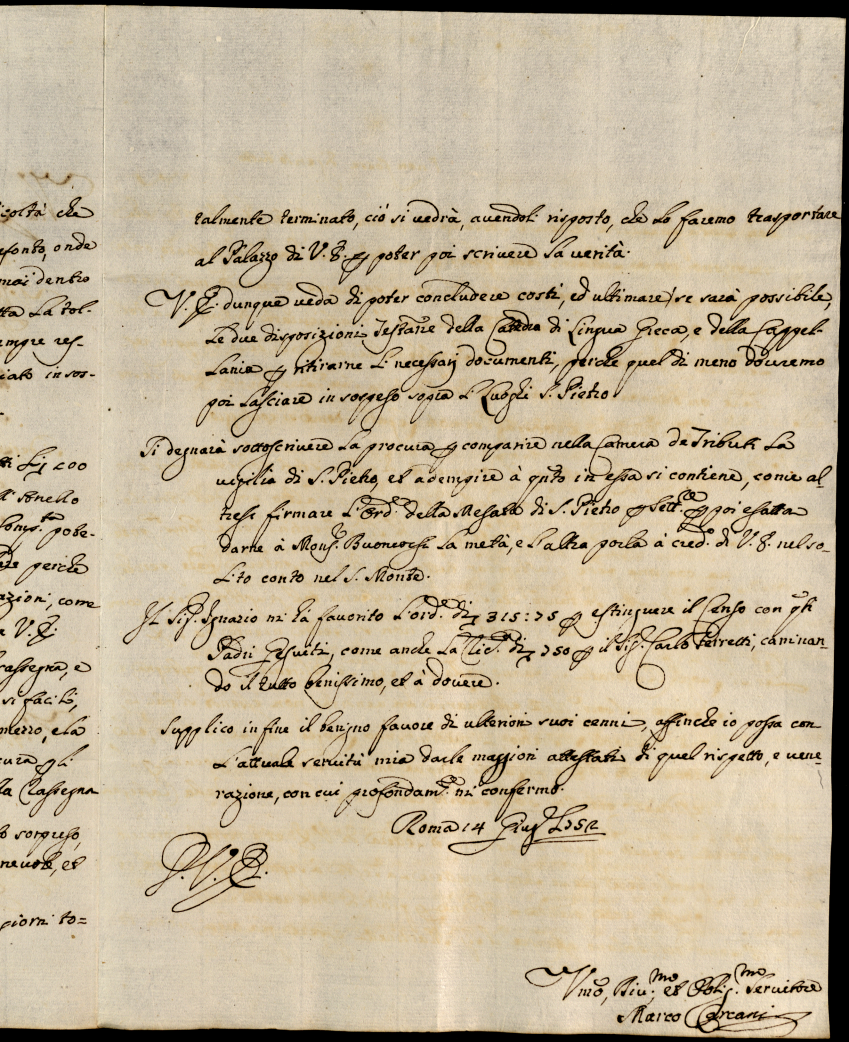 icoltà che
efonto, onde
mai dentro
tta La tol-
empre res-
iato in sos-
400
pobe-
perche
azioni, come
a V. E.
rassegna, e
si facili,
mezzo, e la
cura gli
La Rassegna
o sorpreso,
nevole, et
giorni to=
talmente terminato, ciò si vedrà, avendoli risposto, che Lo faremo trasportare
al Palazzo di V. E. p poter poi scrivere La verità.
V. E. dunque veda di poter concludere costì, ed ultimare, se sarà possibile,
Le due disposizioni Testarie della Catedra di Lingua Greca, e della Cappel-
Lania p ritirarne Li necessarj documenti, perche quel di meno dovremo
poi Lasciare in sospeso sopra Li Luoghi S. Pietro
Si degnarà sottoscrivere La procura p comparire nella Camera de Tributi La
vigilia di S. Pietro, et adempire à qnto in essa si contiene, come al-
tresi firmare L'Ord.e della Mesata di S. Pietro p Sett.bre p poi esatta
darne à Mons.r Buonaccorsi La metà, e L'altra porla à cred.o di V. E. nel so-
Lito conto nel S. Monte.
Il Sig.r Ignazio mi hà favorito L'ord.e di 315:75 p estinguere il Censo con qsti
Padri Gesuiti, come anche La Lic.a di 750 p il Sig.r Carlo Ferretti, caminan-
do il tutto benissimo, et à dovere.
Supplico in fine il benigno favore di ulteriori suoi cenni, affinche io possa con
L'attuale servitù mia darle maggiori attestati di quel rispetto, e vene-
razione, con cui profondam.te mi confermo.
Roma 14 Giug.o 1752
D. V. E.
Vmo, Div.mo, et Oblig.mo Servitore
Marco Carcani